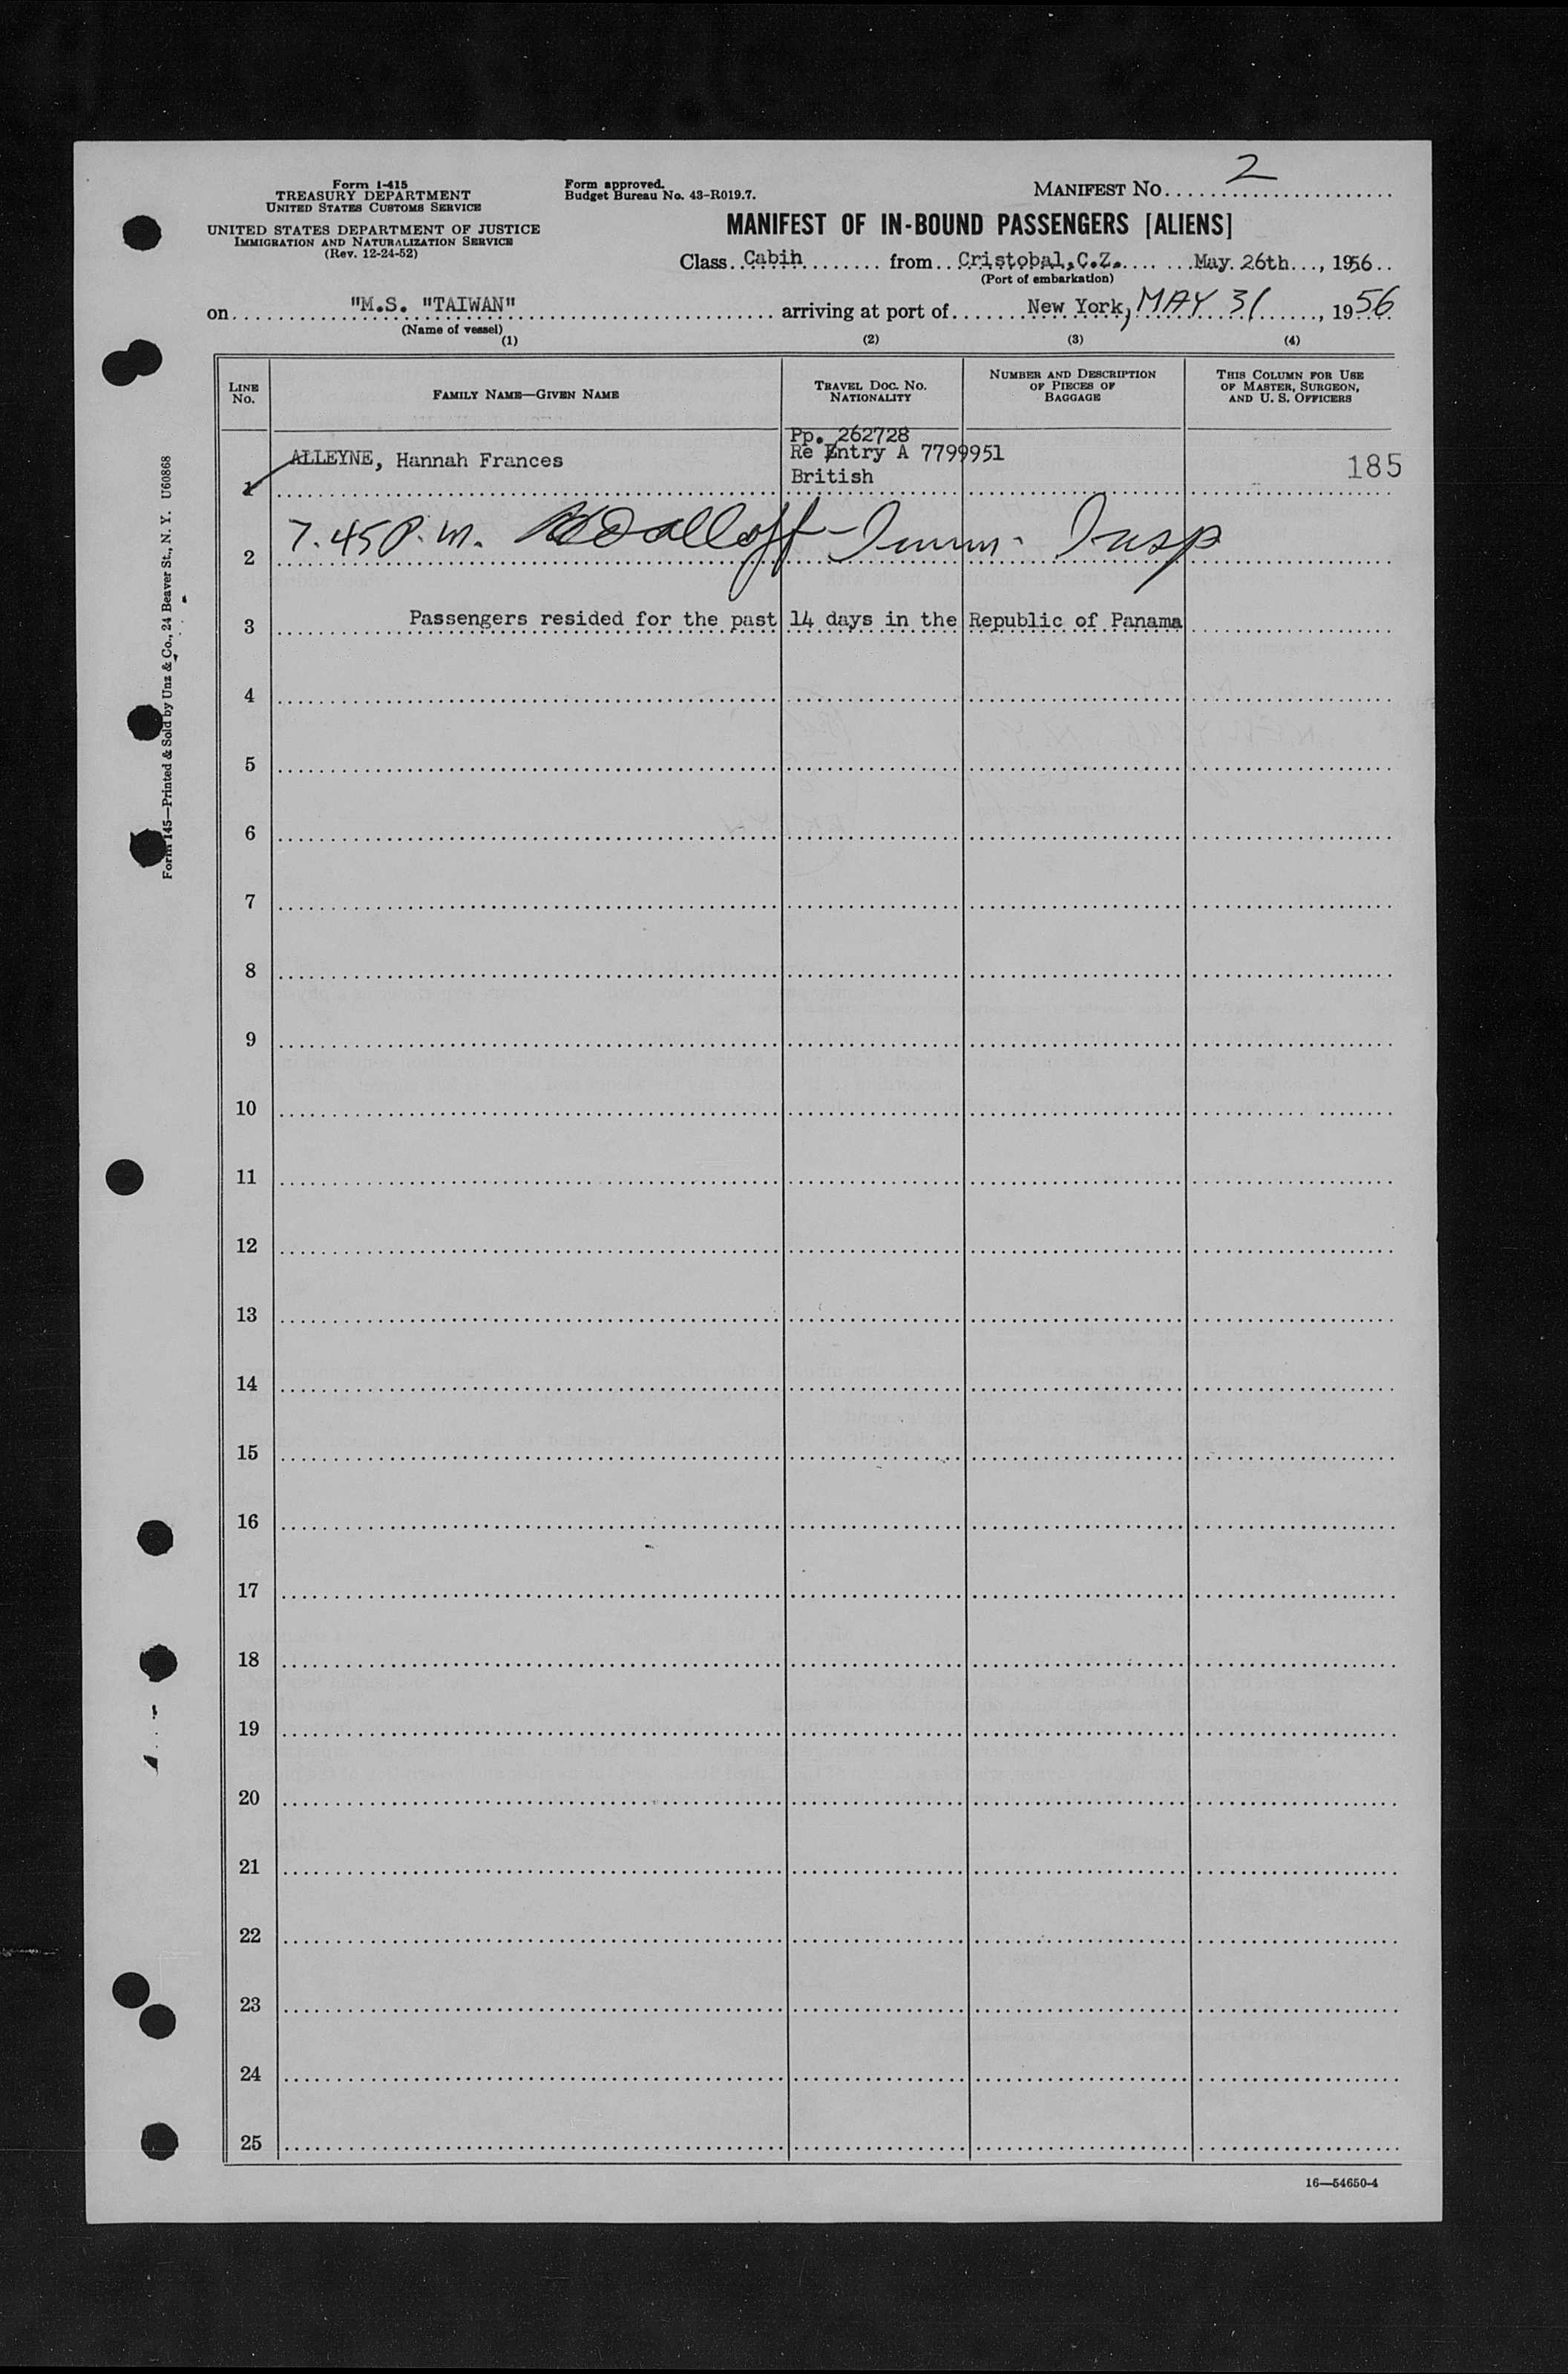 Form I-415
TREASURY DEPARTMENT
UNITED STATES CUSTOMS SERVICE
UNITED STATES DEPARTMENT OF JUSTICE
IMMIGRATION AND NATURALIZATION SERVICE
(Rev. 12-24-52)
Form approved.
Budget Bureau No. 43-R019.7.
MANIFEST NO. 2
MANIFEST OF IN-BOUND PASSENGERS [ALIENS]
Class Cabin from Cristobal, C.Z. May 26th, 1956
(Port of embarkation)
on "M.S. "TAIWAN" arriving at port of New York, MAY 31, 1956
(Name of vessel)
(1) (2) (3) (4)
LINE NO. FAMILY NAME—GIVEN NAME TRAVEL DOC. NO. NATIONALITY NUMBER AND DESCRIPTION OF PIECES OF BAGGAGE THIS COLUMN FOR USE OF MASTER, SURGEON, AND U. S. OFFICERS
Pp. 262728
Re Entry A 7799951
1 ALLEYNE, Hannah Frances British 185
2 7.45 P.M. Imm. Insp
3 Passengers resided for the past 14 days in the Republic of Panama
4
5
6
7
8
9
10
11
12
13
14
15
16
17
18
19
20
21
22
23
24
25
16—54650-4
Form 145—Printed & Sold by Unz & Co., 24 Beaver St., N. Y. U60868